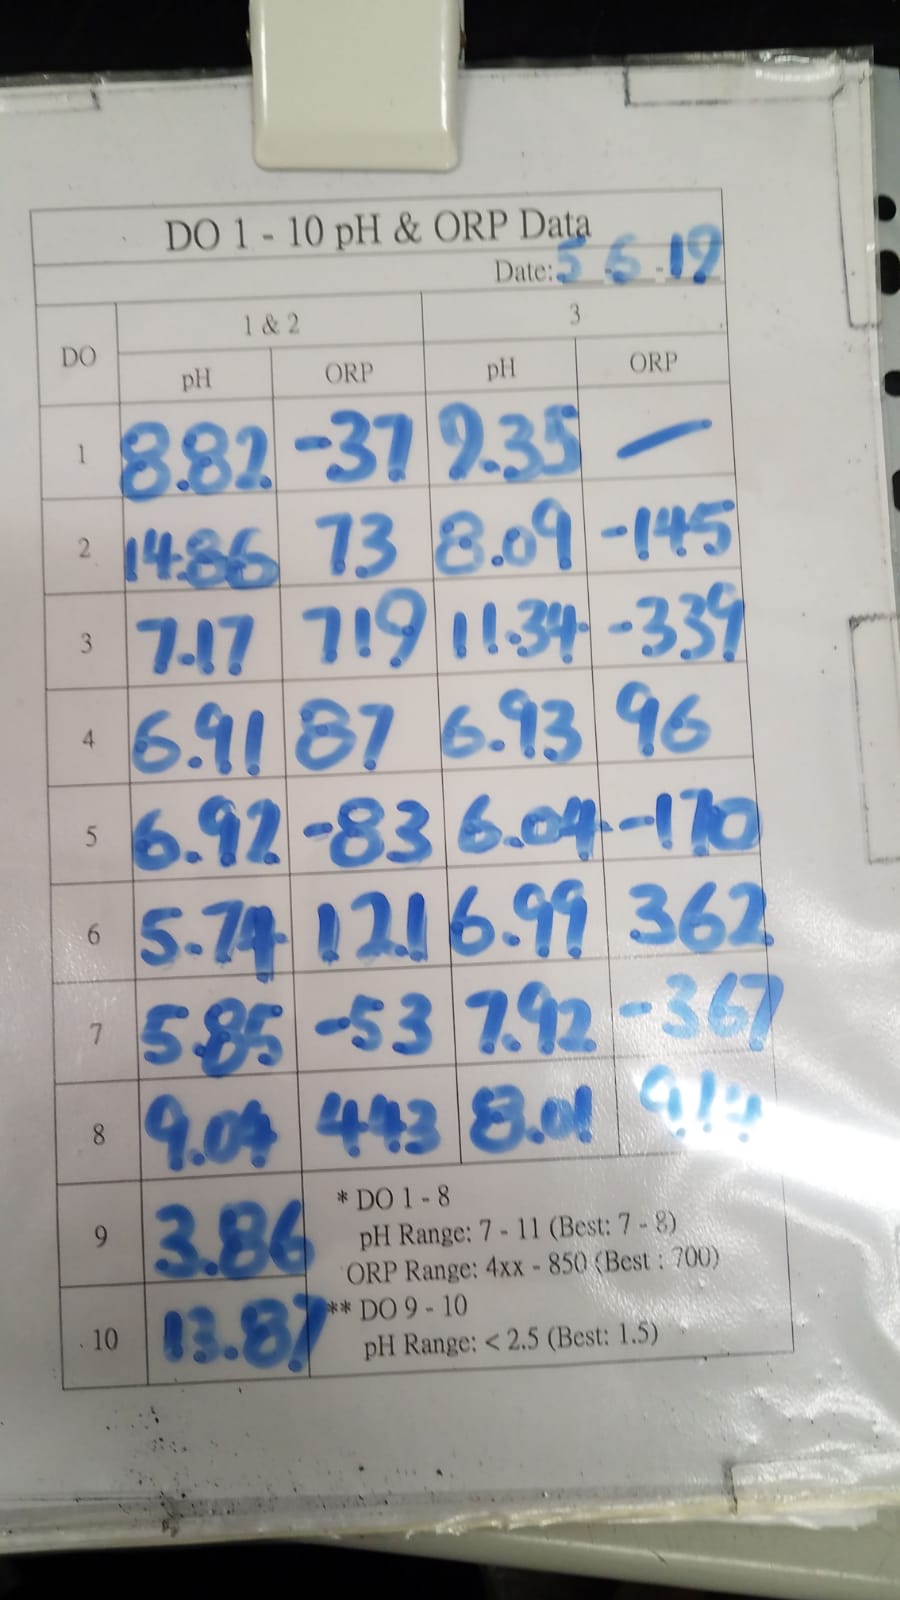 DO 1 - 10 pH & ORP Data
Date: 5-6-19
DO 1 & 2 3
pH ORP pH ORP
1 8.82 -37 9.35 —
2 14.86 73 8.09 -145
3 7.17 719 11.34 -339
4 6.91 87 6.93 96
5 6.92 -83 6.04 -170
6 5.74 121 6.99 362
7 5.85 -53 7.92 -367
8 9.04 443 8.01
9 3.86
10 13.87
* DO 1 - 8
pH Range: 7 - 11 (Best: 7 - 8)
ORP Range: 4xx - 850 (Best : 700)
** DO 9 - 10
pH Range: < 2.5 (Best: 1.5)